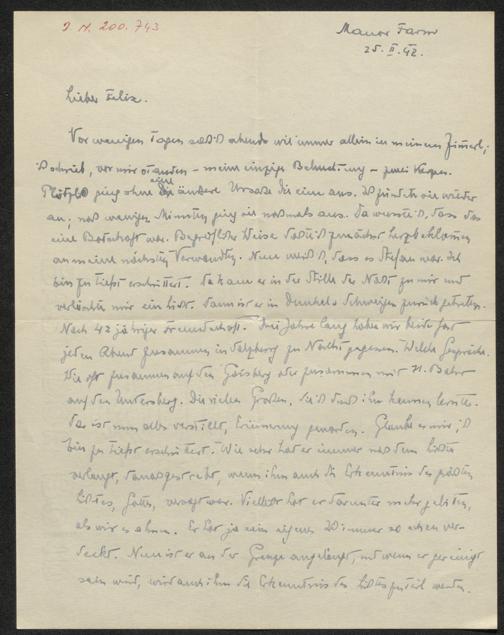 J. N. 200.743
Manor Farm
25. II. 42.
Lieber Felix.
Vor wenigen Tagen saß ich abends wie immer allein in meinem Zimmerl;
ich schrieb, vor mir standen – meine einzige Beleuchtung – zwei Kerzen.
Plötzlich ging ohne eine äußere Ursache die eine aus. Ich zündete sie wieder
an; nach wenigen Minuten ging sie nochmals aus. Da wusste ich, dass das
eine Botschaft war. Begreiflicher Weise dachte ich zunächst herzbeklommen
an meine nächsten Verwandten. Nun weiß ich, dass es Stefan war. Ich
bin zu tiefst erschüttert. Da kam er in der Stille der Nacht zu mir und
verlöschte mir ein Licht. Dann ist er in dunkles Schweigen zurück getreten.
Nach 42 jähriger Freundschaft. Drei Jahre lang haben wir beide fast
jeden Abend zusammen in Salzburg zu Nacht gegessen. Welche Gespräche.
Wie oft zusammen auf den Gaisberg oder zusammen mit H. Bahr
auf den Untersberg. Die vielen Großen, die ich durch ihn kennen lernte.
Das ist nun alles verstillt, Erinnerung geworden. Glaube mir, ich
bin zu tiefst erschüttert. Wie sehr hat er immer nach dem Lichte
verlangt, danach gestrebt, wenn ihm auch die Erkenntnis des größten
Lichtes, Gottes, versagt war. Vielleicht hat er darunter mehr gelitten,
als wir es ahnen. Er hat ja sein eigenes Ich immer so scheu ver-
deckt. Nun ist er an der Grenze angelangt, und wenn er gereinigt
sein wird, wird auch ihm die Erkenntnis des Lichtes zuteil werden.